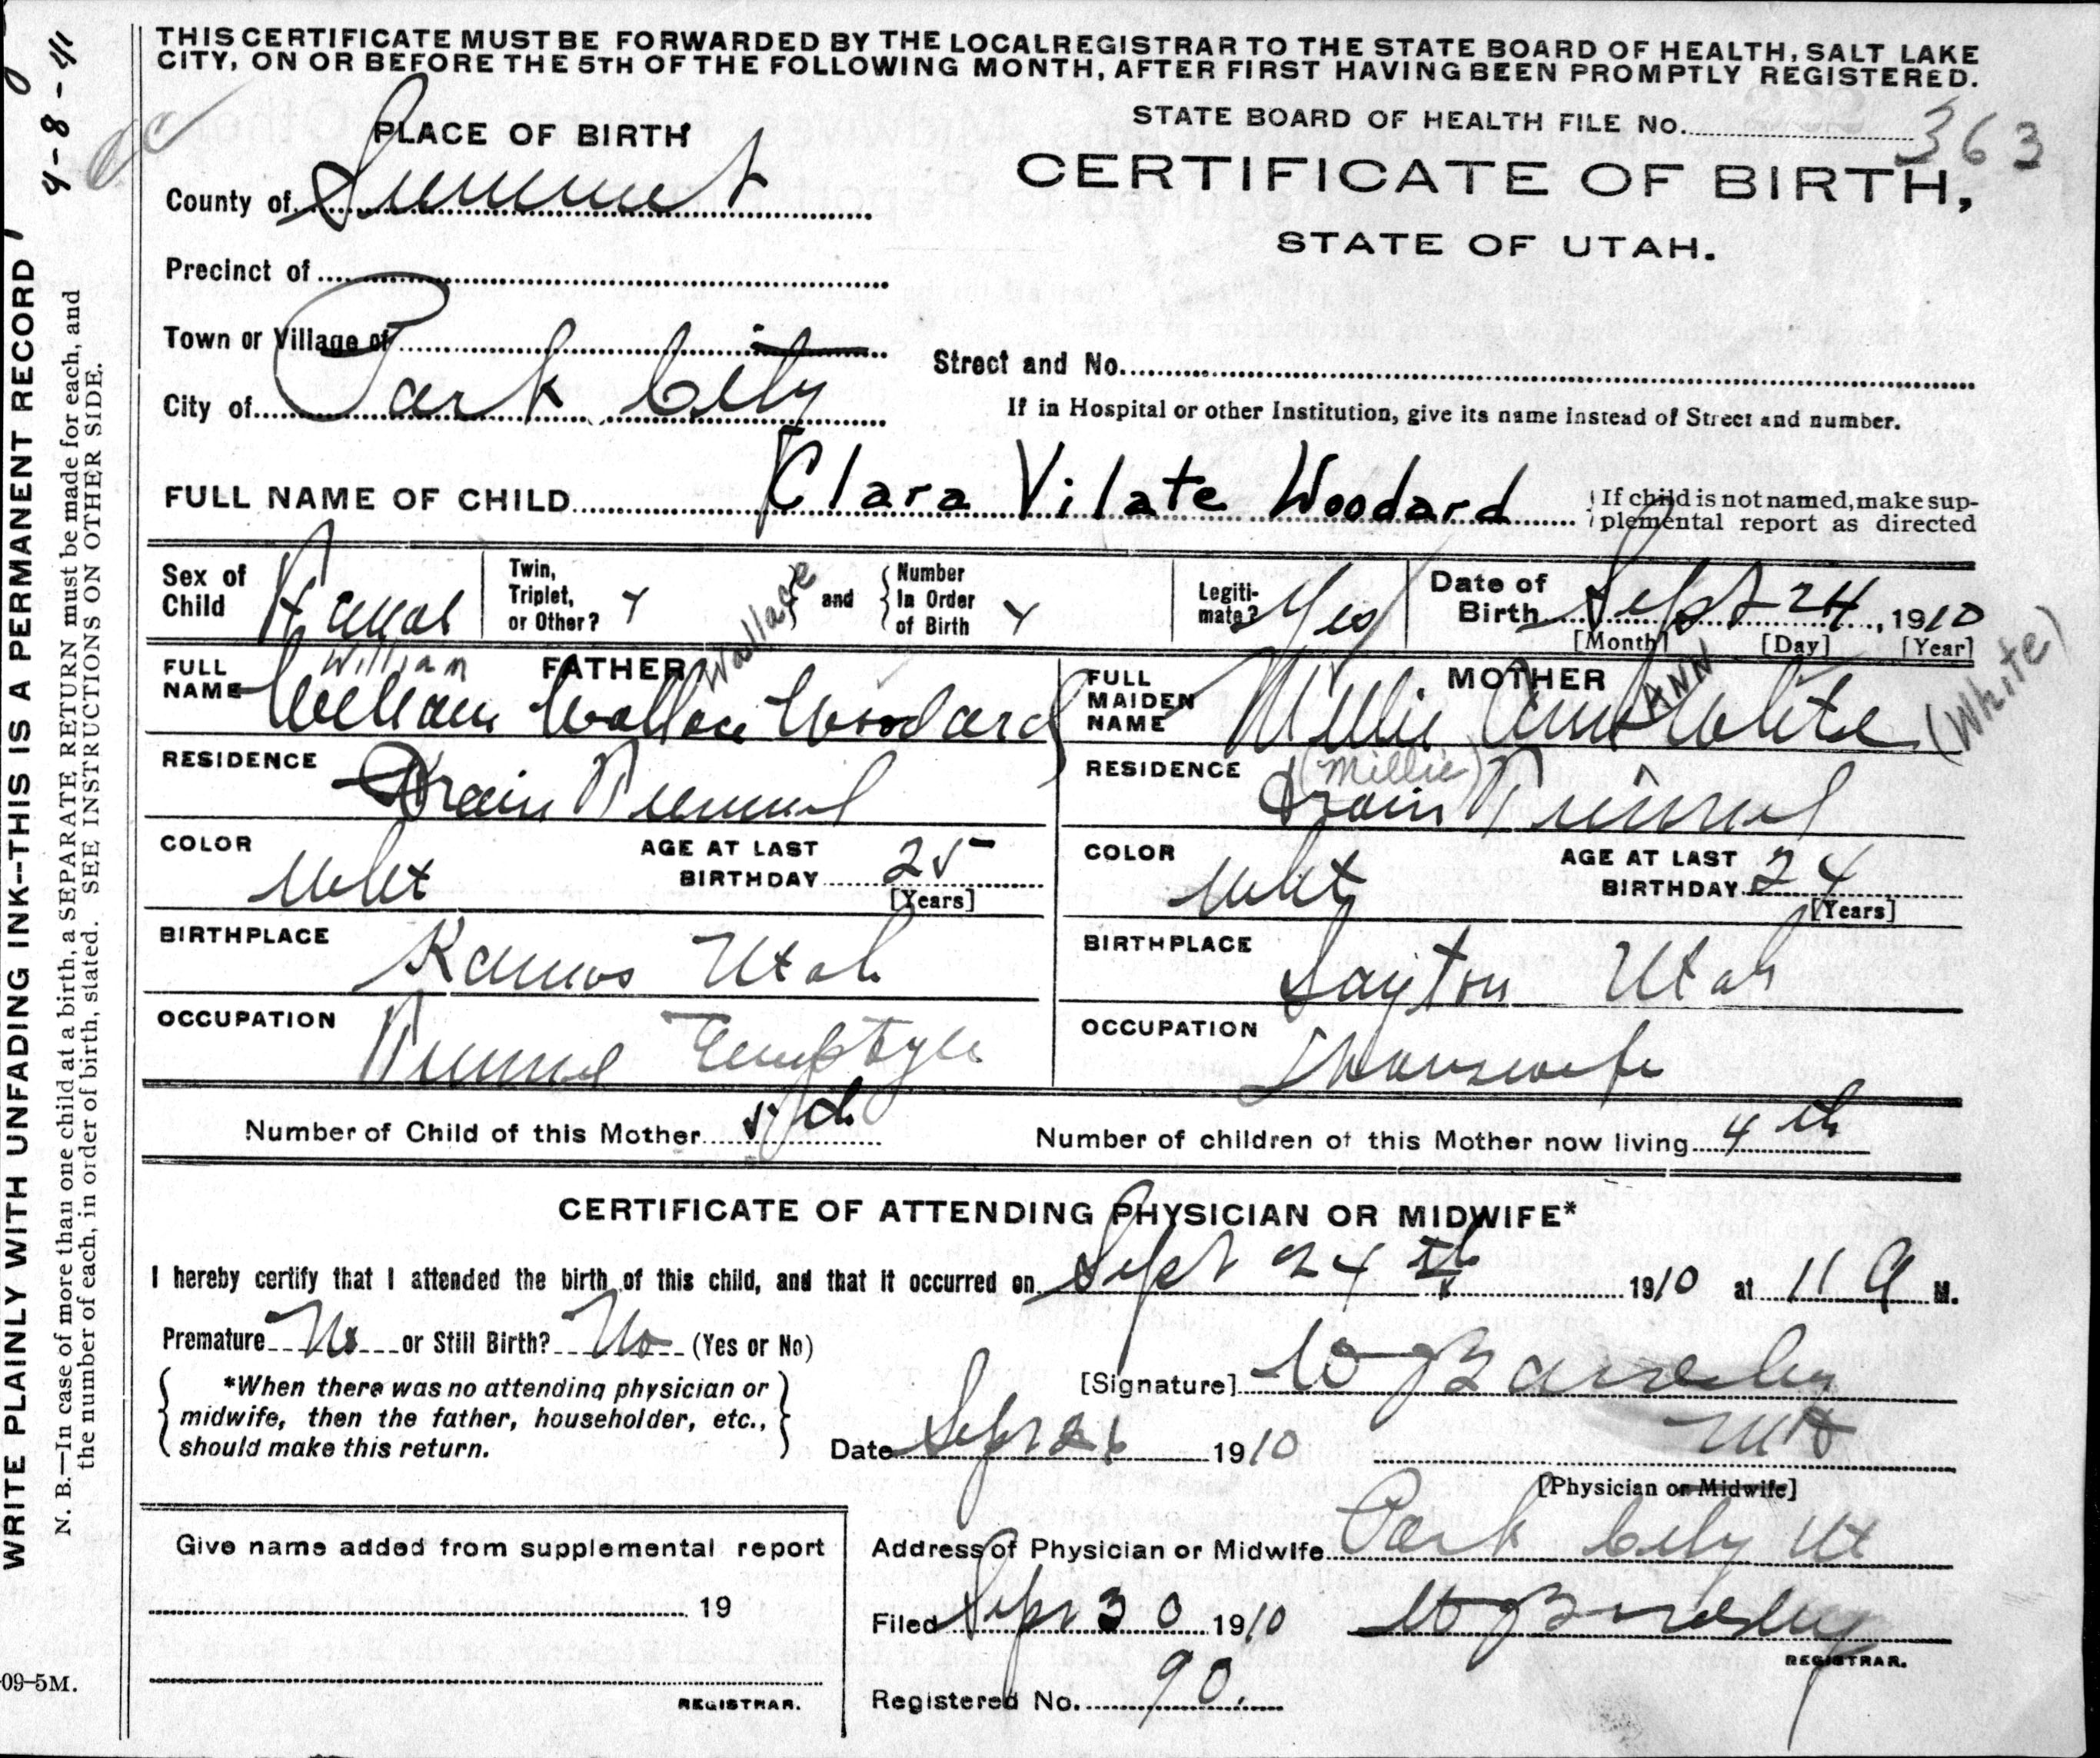 THIS CERTIFICATE MUST BE FORWARDED BY THE LOCAL REGISTRAR TO THE STATE BOARD OF HEALTH, SALT LAKE
CITY, ON OR BEFORE THE 5TH OF THE FOLLOWING MONTH, AFTER FIRST HAVING BEEN PROMPTLY REGISTERED.
4-8-41
WRITE PLAINLY WITH UNFADING INK--THIS IS A PERMANENT RECORD
N. B.—In case of more than one child at a birth, a SEPARATE RETURN must be made for each, and
the number of each, in order of birth, stated. SEE INSTRUCTIONS ON OTHER SIDE.
STATE BOARD OF HEALTH FILE No. 363
CERTIFICATE OF BIRTH,
STATE OF UTAH.
PLACE OF BIRTH
County of Summit
Precinct of
Town or Village of
City of Park City
Street and No.
If in Hospital or other Institution, give its name instead of Street and number.
FULL NAME OF CHILD Clara Vilate Woodard
If child is not named, make sup-
plemental report as directed
Sex of Child Femal
Twin, Triplet, or Other?
and
Number In Order of Birth
Legiti-mate? Yes
Date of Birth Sept 24, 1910
[Month] [Day] [Year]
FATHER
FULL NAME William Wallace Woodard
William Wallace
RESIDENCE Drain Tunnel
COLOR Whit
AGE AT LAST BIRTHDAY 25
[Years]
BIRTHPLACE Kamas Utah
OCCUPATION Tunnel
MOTHER
FULL MAIDEN NAME Millie Ann White
ANN (White)
(Millie)
RESIDENCE Drain Tunnel
COLOR Whit
AGE AT LAST BIRTHDAY 24
[Years]
BIRTHPLACE Layton Utah
OCCUPATION Housewife
Number of Child of this Mother 5th
Number of children of this Mother now living 4th
CERTIFICATE OF ATTENDING PHYSICIAN OR MIDWIFE*
I hereby certify that I attended the birth of this child, and that it occurred on Sept 24th 1910 at 11 a M.
Premature No or Still Birth? No (Yes or No)
*When there was no attending physician or
midwife, then the father, householder, etc.,
should make this return.
[Signature]
Date Sept 26 1910
MD
[Physician or Midwife]
Give name added from supplemental report
19
REGISTRAR.
Address of Physician or Midwife Park City Ut
Filed Sept 30 1910
REGISTRAR.
Registered No. 90.
09-5M.